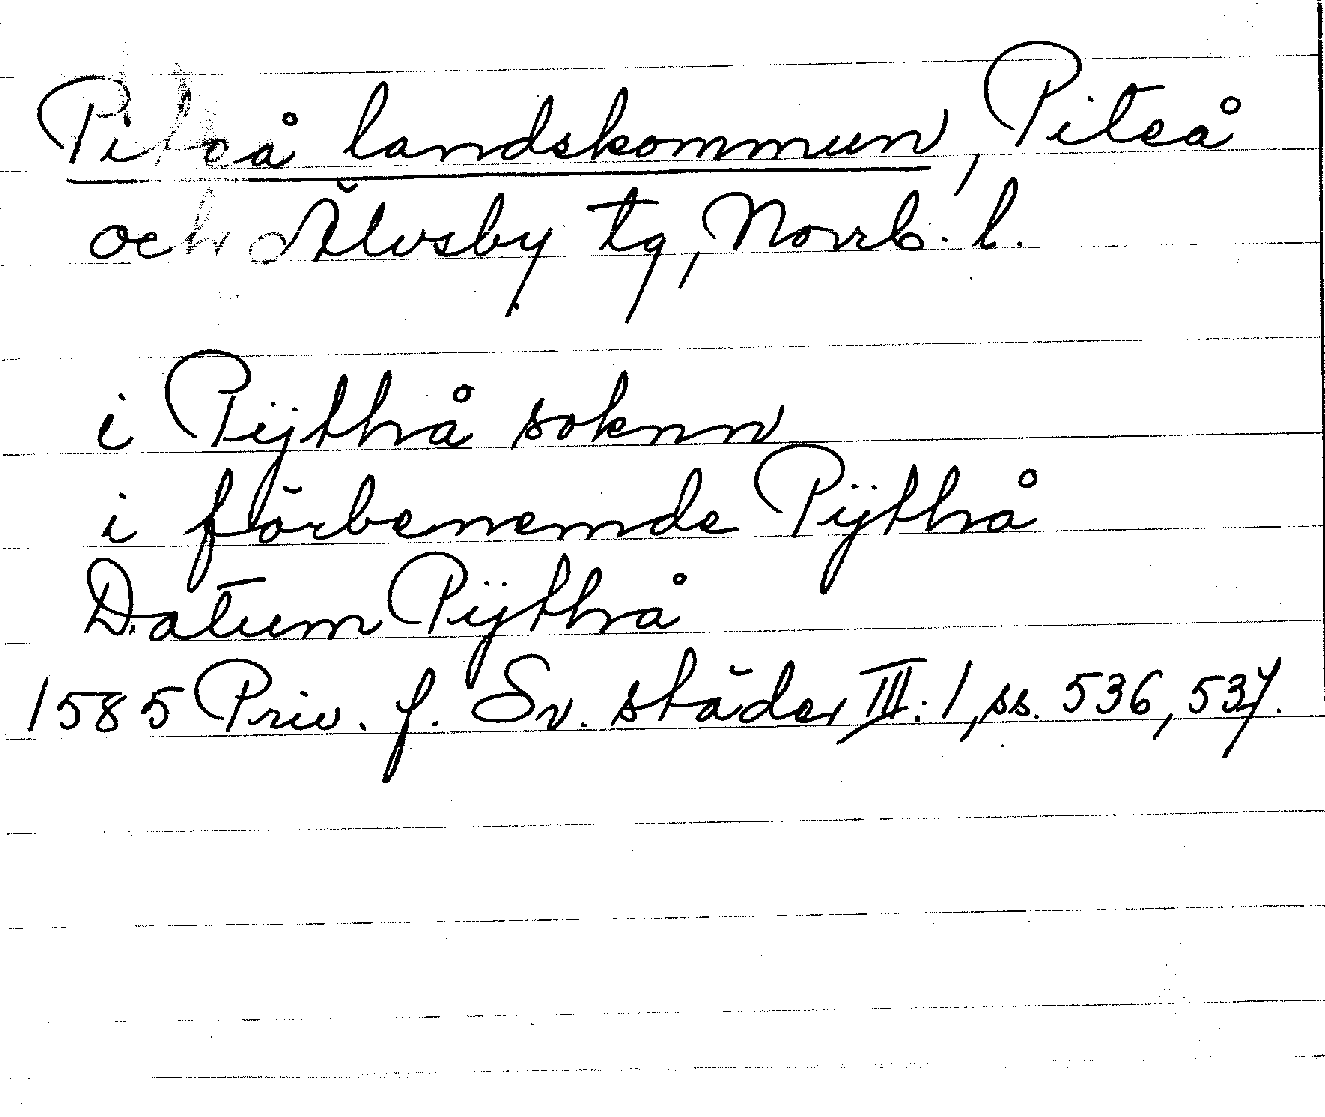 Piteå landskommun, Piteå
och Älvsby tg, Norrb. l.
i Pÿthå soknn
i förbenemde Pÿthå
Datum Pÿthå
1585 Priv. f. Sv. städer III:1, ss. 536, 537.